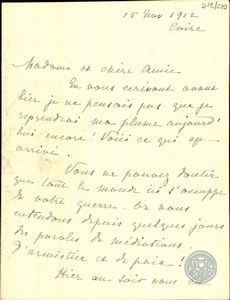 15 Nov 1912
Caire
Madame et chère Amie
En vous écrivant avant
hier je ne pensais pas que je
reprendrai ma plume aujourd'
hui encore! Voici ce qui est
arrivé.
Vous ne pouvez douter
que tout le monde ici s'occupe
de votre guerre. Or nous
entendons depuis quelques jours
des paroles de médiations,
d'armistice et de paix!
Hier au soir nous